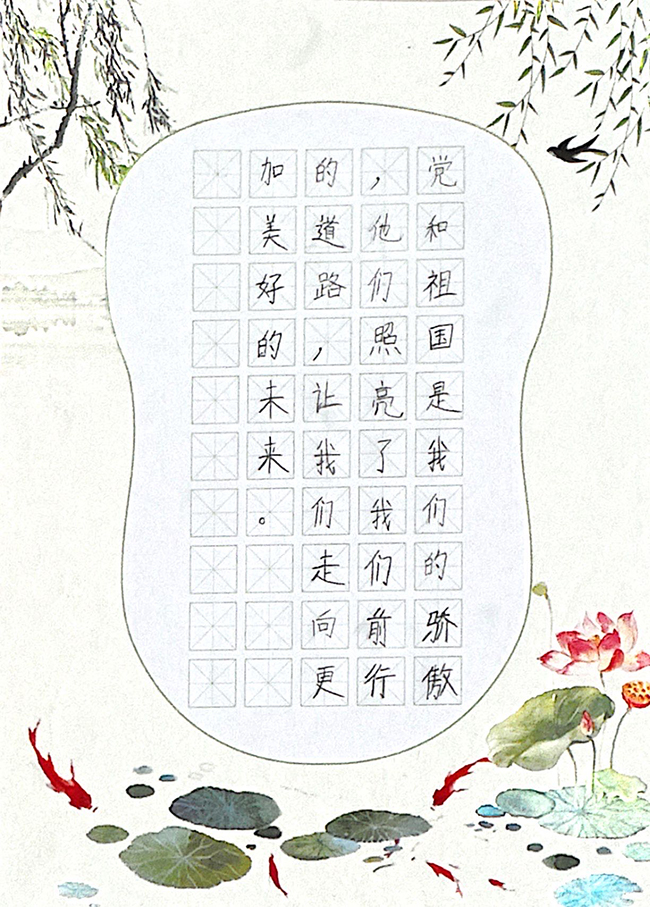 党和祖国是我们的骄傲
，他们照亮了我们前行
的道路，让我们走向更
加美好的未来。